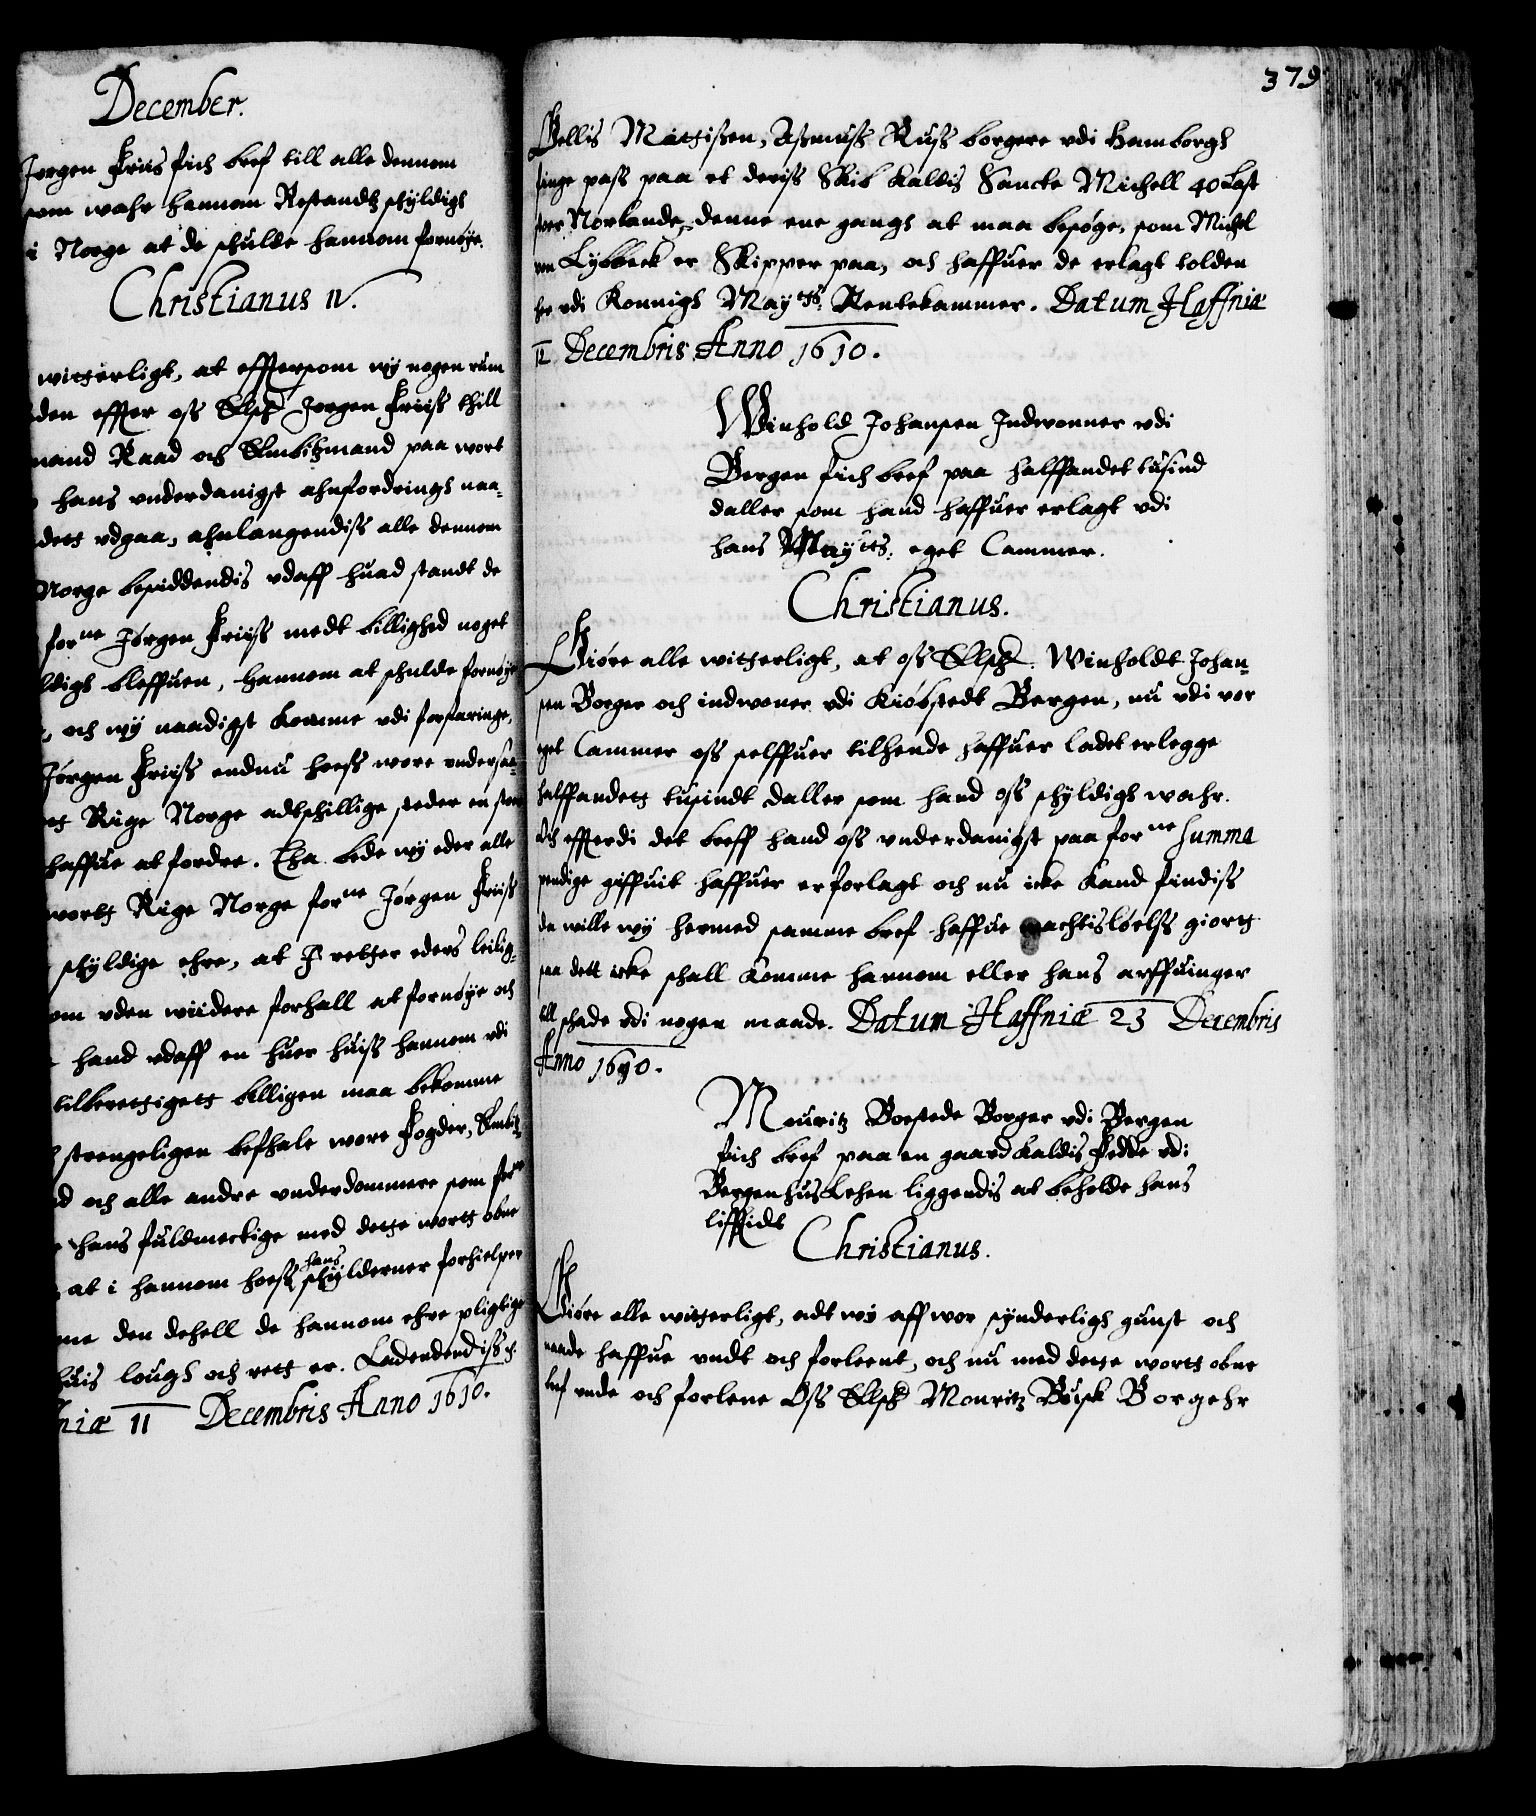 December.
Jørgen Friis fich bref till alle dennom
som wahr hannom Restandtz schyldigh
i Norge at de schulde hannom fornøye.
Christianus IV.
witterligt, at effttersom wy nogen rum
den effter oss Elsch Jørgen Friiss thill
mand Raad och Embitzmand paa wort
hans vnderdanigst ahnfordringh naa-
dets vdgaa, ahnlangendiss alle dennom
Norge besiddendis vdaff huad standt de
forne Jørgen Friiss medt billighed noget
ldigh bleffuen, hannom at schulde fornøye
, och wy naadigst komme vdi forfaringe,
Jørgen Friiss endnu hoess wore vndersaa-
ts Rige Norge adtschillige steder en stoer
haffue at fordre. Tha bede wy eder alle
worts Rige Norge forne Jørgen Friiss
schyldige ehre, at I retther eders leilig-
om vden wiidere forhall at fornøye och
hand vdaff en huer huiss hannom vdi
tilberettigets billigen maa bekomme
strengeligen befhale wore Fogder, Embitz
d och alle andre vnderdommere som forne
hans fuldmectige med dette worts obne
at i hannom hoess hans schylderner forhielper
me den dehell de hannom ehre pligtige
huis lough och rett er. Ladendendiss ej.
niæ 11 Decembris Anno 1610.
379
Pellis Mattissen, Assmuss Russ borgere vdi Hamborgh
finge pass paa et deriss Skib kaldis Sancte Michell 40 Last
ster Norlande, denne ene gangh at maa besøge, som Michel
von Lybbeck er Skipper paa, och haffuer de erlagt tolden
her vdi Konnigh Mayts: Rentekammer. Datum Haffniæ
12 Decembris Anno 1610.
Winhold Johansen Indwonner vdi
Bergen fich bref paa halffandet tusind
daller som hand haffuer erlagt vdi
hans Mayits: eget Cammer.
Christianus.
Giøre alle witterligt, at oss Elsch. Winholdt Johan-
sen Borger och indwoner vdi Kiøbstedt Bergen, nu vdi vor
eget Cammer oss selffuer tilhende haffuer ladet erlegge
halffandets tusindt daller som hand oss schyldigh wahr.
Och effterdi det breff hand oss vnderdanigst paa forne Summa
pendige giffuit haffuer er forlagt och nu icke kand findiss
da wille wy hermed samme bref haffue machtisløelss giorts
saa dett icke schall komme hannom eller hans arffuinger
till schade vdi nogen maade. Datum Haffniæ 23 Decembris
Anno 1610.
Mouritz Bostede Borger vdi Bergen
fich bref paa en gaard kaldis Fedde vdi
Bergenhus Lehen liggendis at beholde hans
liffstidt
Christianus.
Giøre alle witterligt, adt wy aff wor synderligh gunst och
naade haffue vndt och forleent, och nu med dette worts obne
bref vnde och forlene Oss Elsch Mouritz Busk Borgehr